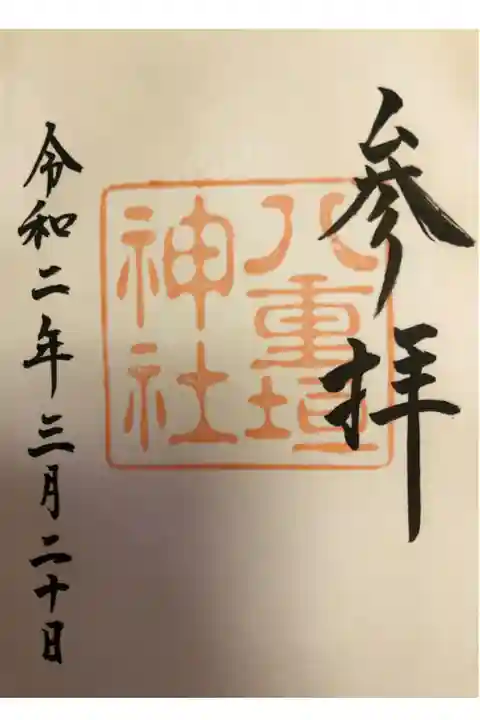 参拝
八重垣
神社
令和二年三月二十日